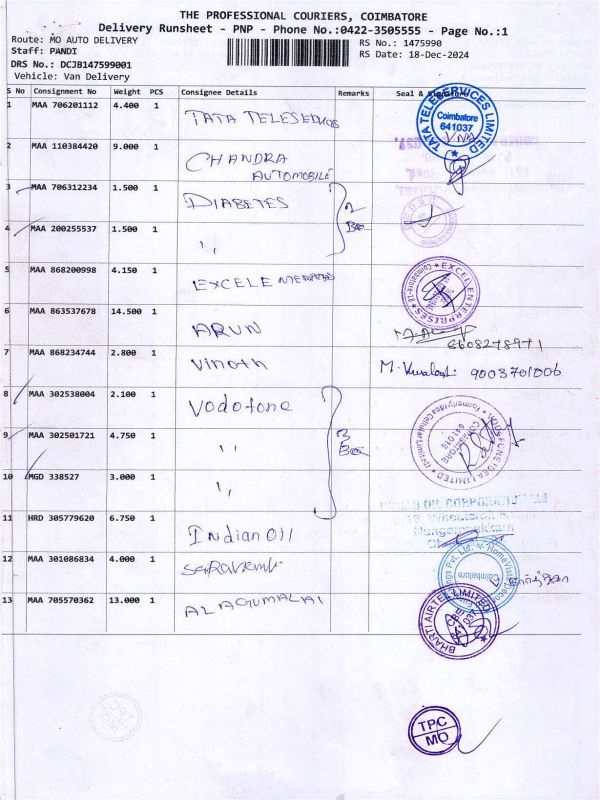 THE PROFESSIONAL COURIERS, COIMBATORE
Delivery Runsheet - PNP - Phone No.:0422-3505555 - Page No.:1
Route: MO AUTO DELIVERY
Staff: PANDI
RS No.: 1475990
RS Date: 18-Dec-2024
DRS No.: DCJB147599001
Vehicle: Van Delivery
S No Consignment No Weight PCS Consignee Details Remarks Seal &
1 MAA 706201112 4.400 1 TATA
TATA TELESERVICES LIMITED
Coimbatore
641037
2 MAA 110384420 9.000 1 CHANDRA
AUTOMOBILE
3 MAA 706312234 1.500 1 DIABETES
2
4 MAA 200255537 1.500 1 ,,
5 MAA 868200998 4.150 1
EXCEL ENTERPRISES
6 MAA 863537678 14.500 1 ARUN
8608278971
7 MAA 868234744 2.800 1 Vinoth M. 9003701006
8 MAA 302538004 2.100 1 Vodofone
9 MAA 302501721 4.750 1 ,,
3
10 MGD 338527 3.000 1 ,,
(Formerly Idea Cellular Limited)
COIMBATORE
641 018
INDIAN OIL CORPORATION
Nungambakkam
11 HRD 305779620 6.750 1 Indian Oil
12 MAA 301086834 4.000 1
Pvt. Ltd.
Coimbatore
13 MAA 705570362 13.000 1 ALAGUMALAI
BHARTI AIRTEL LIMITED
TPC
MO